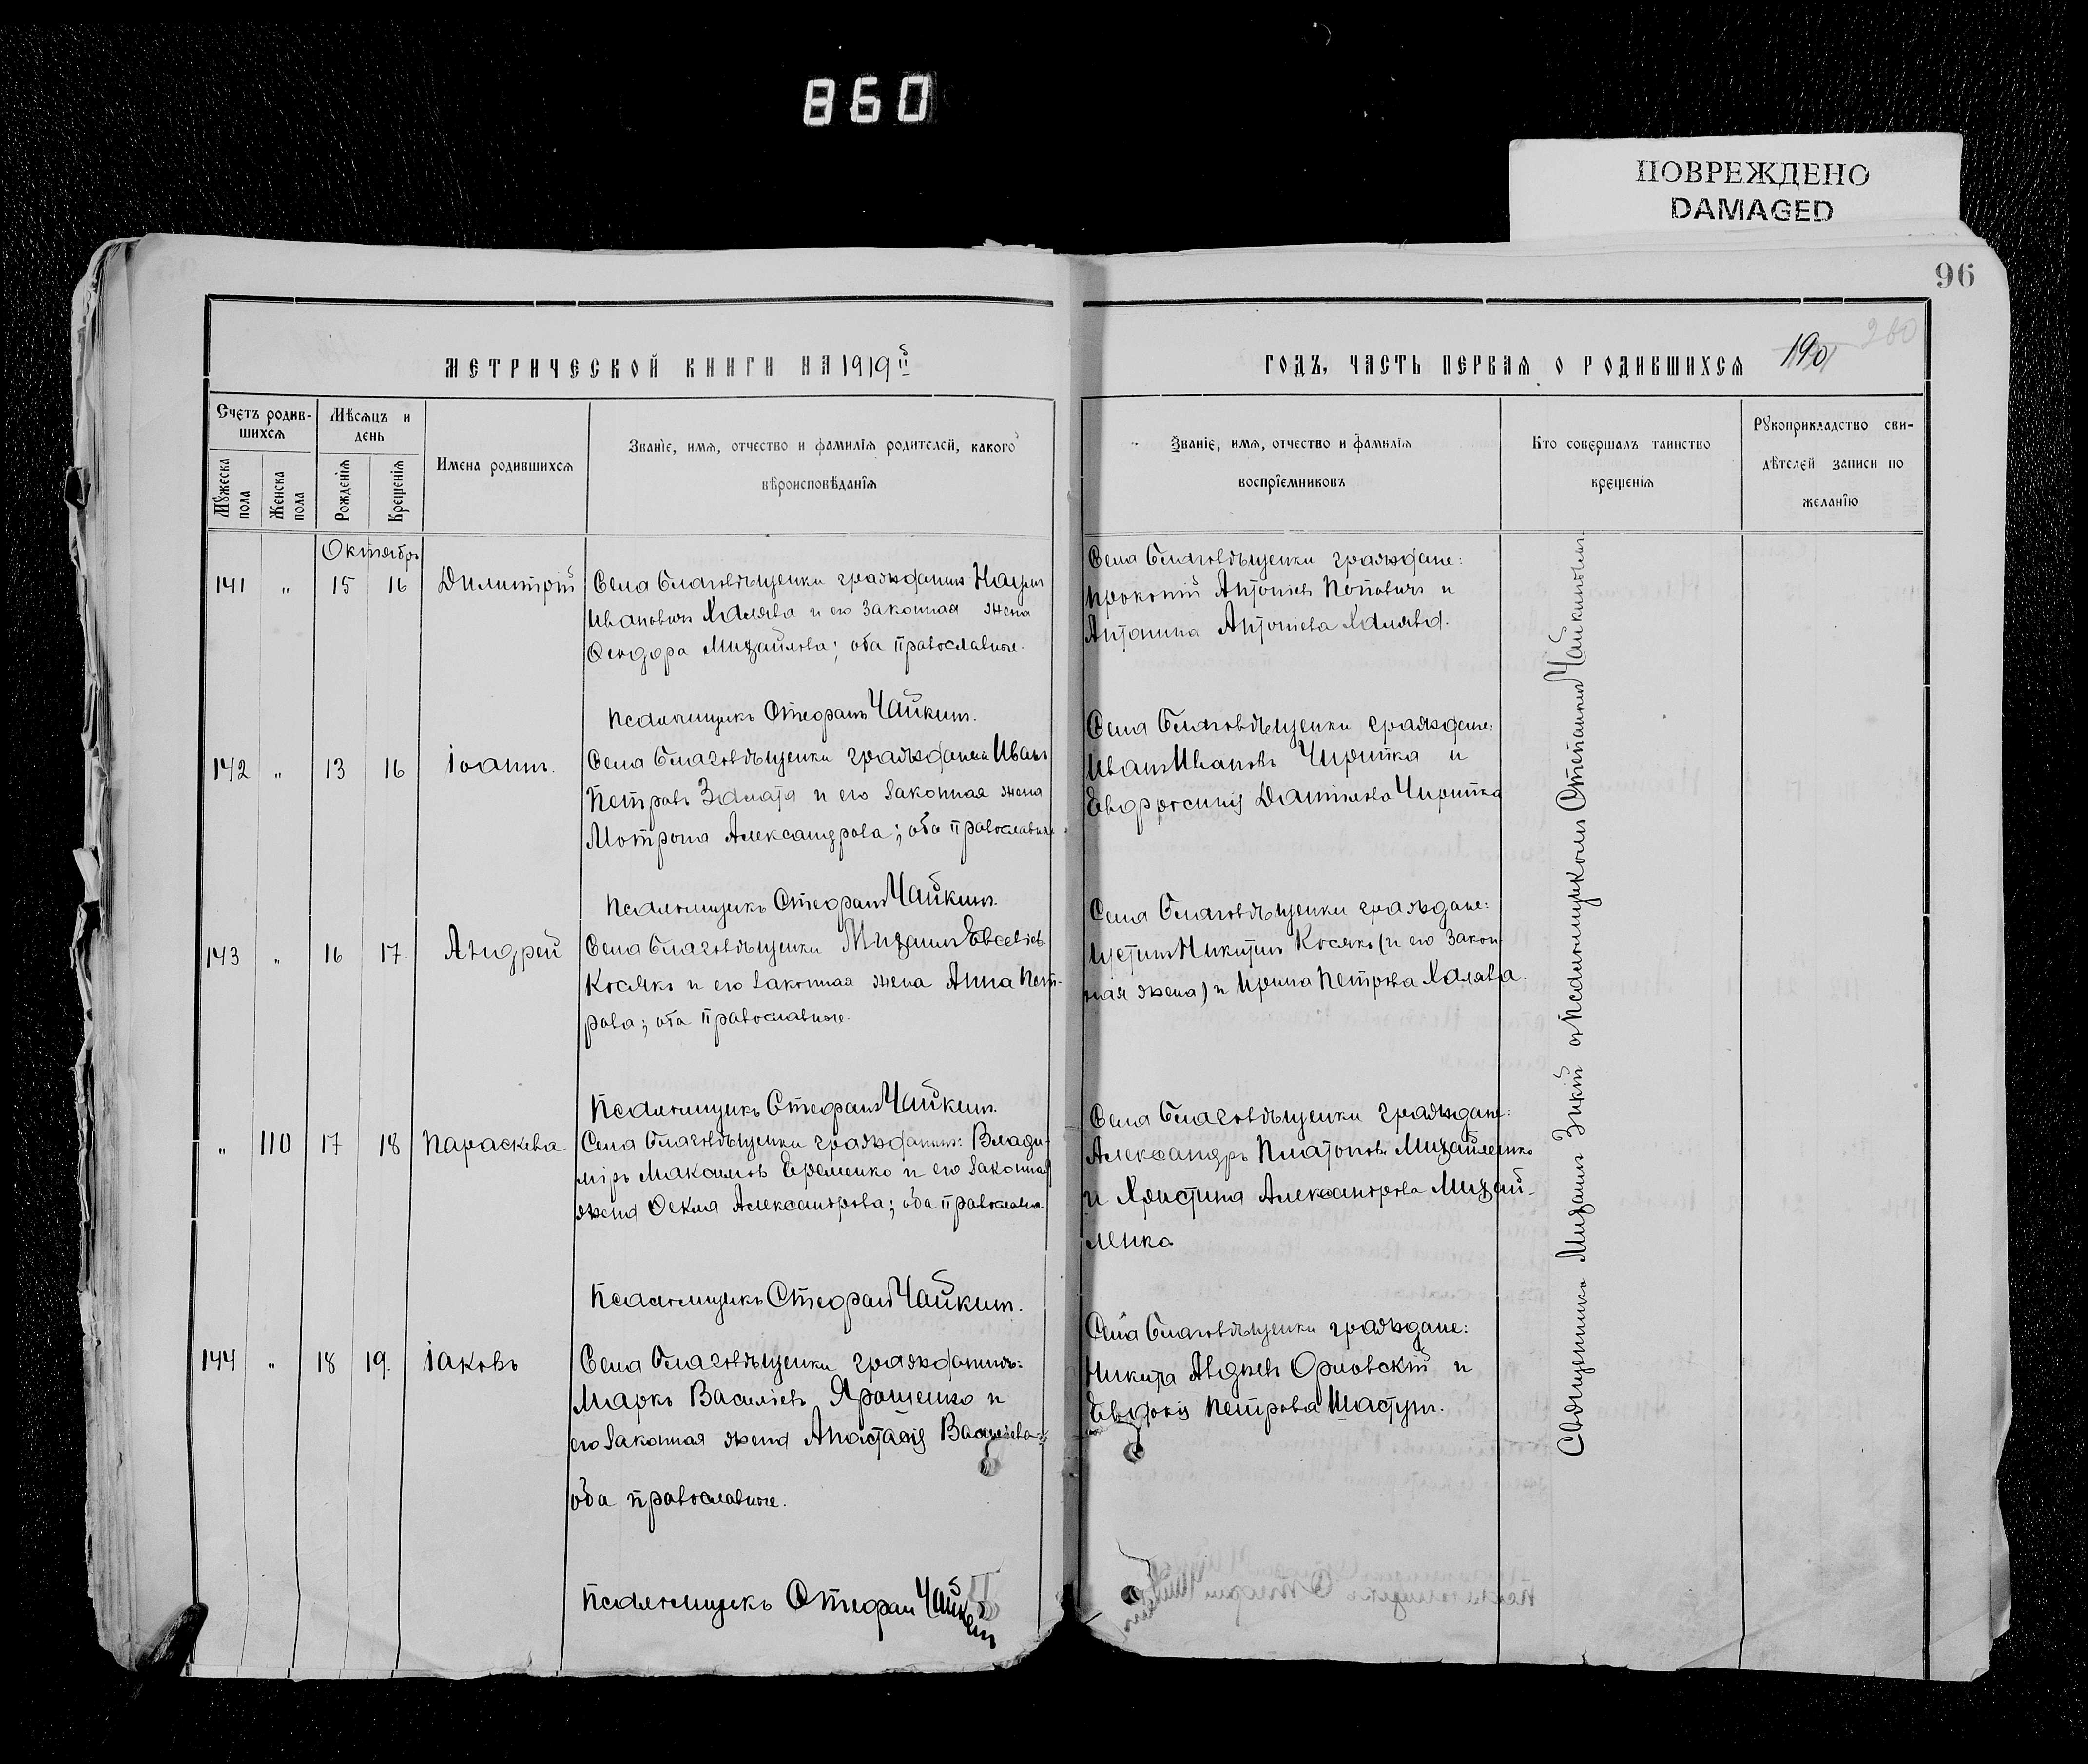 860
ПОВРЕЖДЕНО
DAMAGED
96
МЕТРИЧЕСКОЙ КНИГИ НА 1919 й
Счетъ родив-
шихся
Мѣсяцъ и
день
Имена родившихся
Званіе, имя, отчество и фамилія родителей, какого
вѣроисповѣданія
Мужеска
пола
Женска
пола
Рожденія
Крещенія
Октябрь
141 " 15 16 Димитрій Села Благовѣщенки гражданинъ Наумъ
Ивановичъ Халява и его законная жена
Ѳеодора Михайлова; оба православные.
Псаломщикъ Стефанъ Чайкинъ.
142 " 13 16 Іоаннъ. Села Благовѣщенки гражданинъ Иванъ
Петровъ и его законная жена
Мотрона Александрова; оба православные
Псаломщикъ Стефанъ Чайкинъ.
143 " 16 17. Андрей Села Благовѣщенки Михаилъ Евсевіевъ
Косяко и его законная жена Анна Пет-
рова; оба православные.
Псаломщикъ Стефанъ Чайкинъ.
" 110 17 18 Параскева Села Благовѣщенки гражданинъ: Влади-
міръ Максимовъ Еременко и его законная
жена Ѳекла Александрова; оба православн.
Псаломщикъ Стефанъ Чайкинъ.
144 " 18 19. Іаковъ Села Благовѣщенки гражданинъ:
Маркъ Василіевъ Ярошенко и
его законная жена Анастасія Василіева;
оба православные.
Псаломщикъ Стефан Чайкин
ГОДЪ, ЧАСТЬ ПЕРВАЯ О РОДИВШИХСЯ
190
200
Званіе, имя, отчество и фамилія
воспріемниковъ
Кто совершалъ таинство
крещенія
Рукоприкладство сви-
дѣтелей записи по
желанію
Села Благовѣщенки граждане:
Прокопій Антоніевъ Поповичъ и
Антонина Антоніева Халява.
Села Благовѣщенки граждане:
Иванъ Ивановъ Чирипка и
Евфросинія Даніилова Чирипка
Села Благовѣщенки граждане:
Устинъ Никитинъ Косяко (и его закон-
ная жена) и Ирина Петрова Халява.
Села Благовѣщенки граждане:
Александръ Платоновъ Михайленко
и Христина Александрова Михай-
ленко
Села Благовѣщенки граждане:
Никита Авдіевъ Орловскій и
Евдокія Петрова Шастунъ.
Священникъ Михаилъ Зикій съ псаломщикомъ Стефаномъ Чайкинымъ